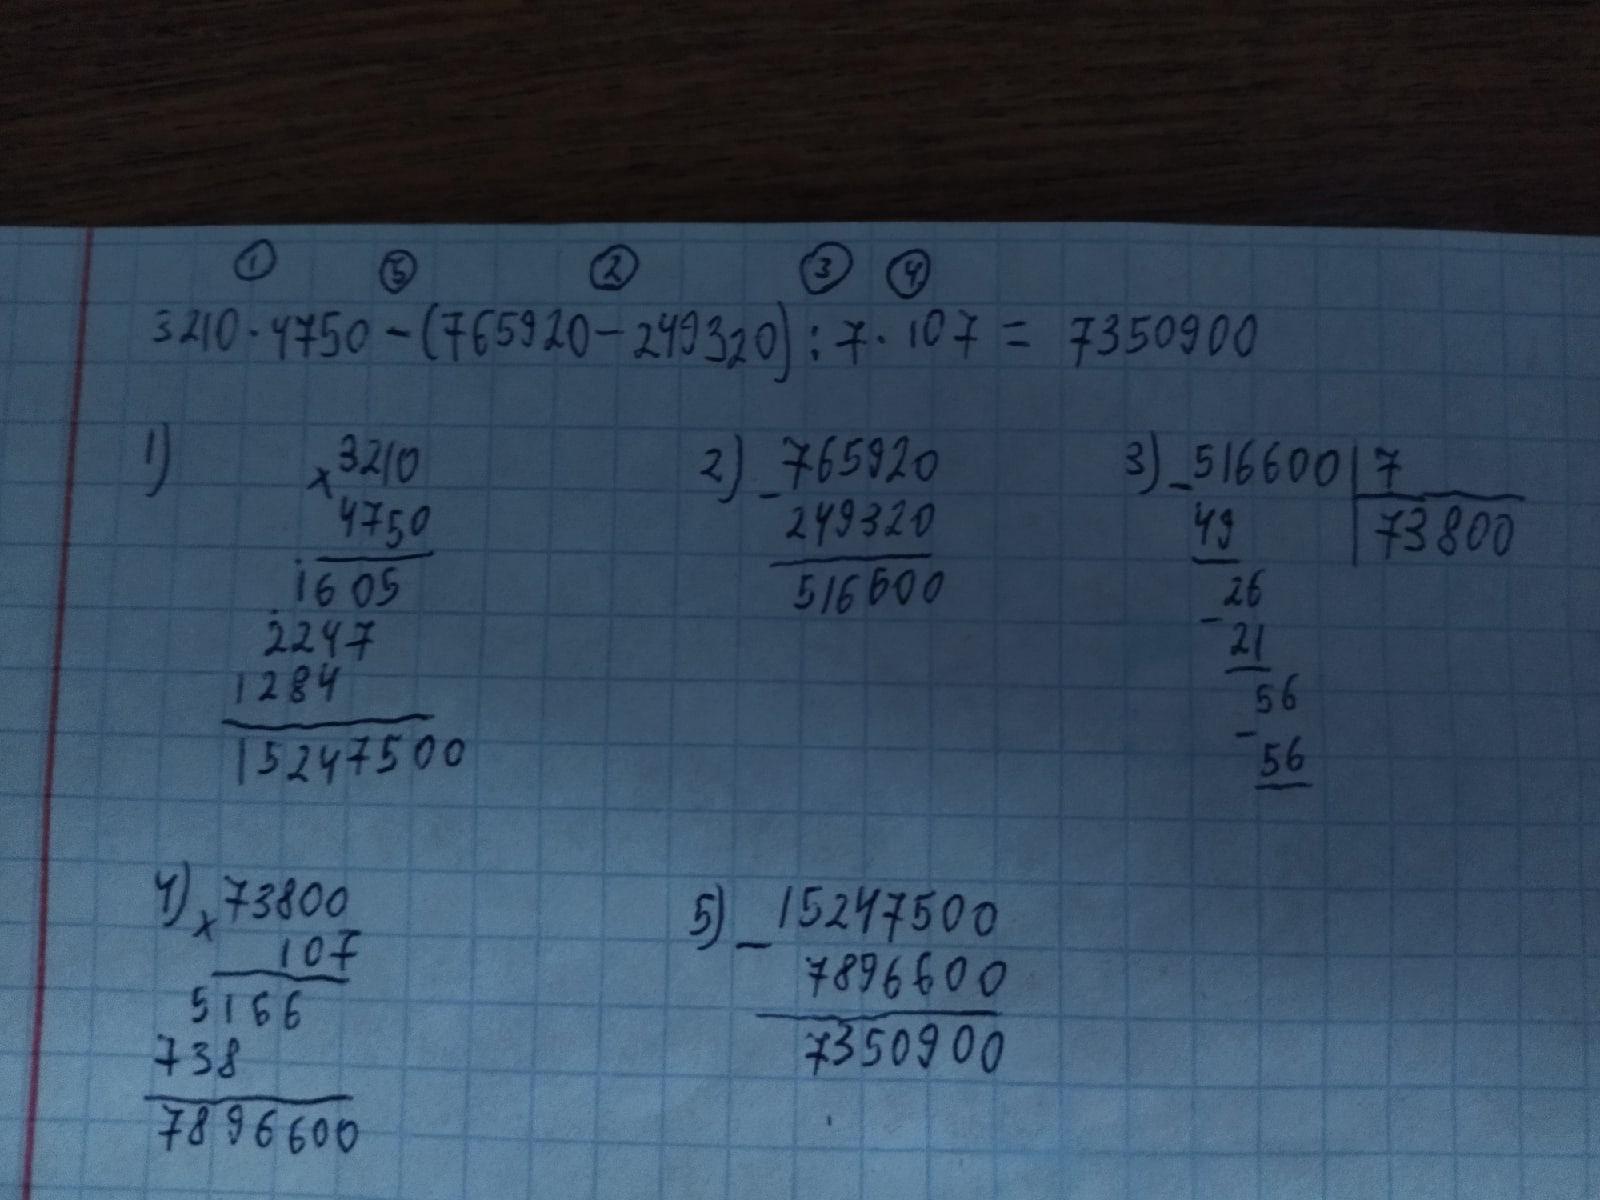 ① ⑤ ② ③ ④
3210 · 4750 - (765920 - 249320) : 7 · 107 = 7350900
1) × 3210
4750
1605
2247
1284
15247500
2) - 765920
249320
516600
3) - 516600 | 7
49 | 73800
- 26
21
- 56
56
4) × 73800
107
5166
738
7896600
5) - 15247500
7896600
7350900